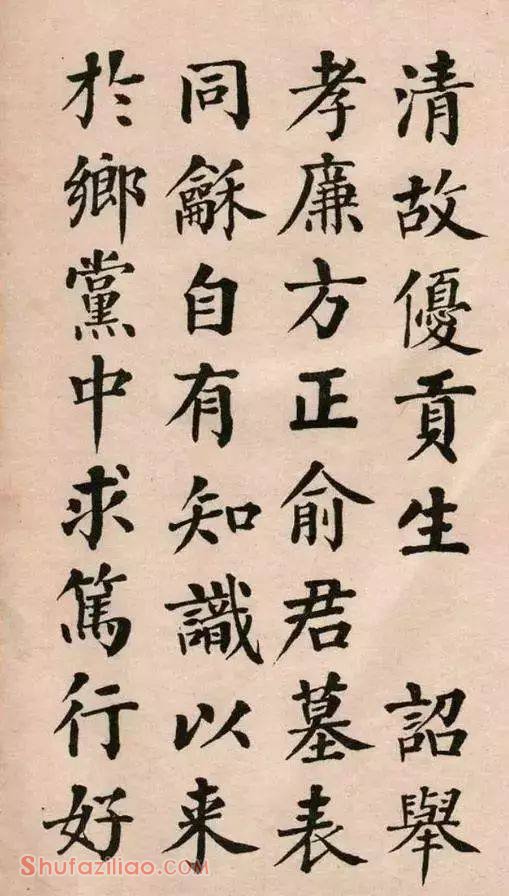 清故優貢生　詔舉
孝廉方正俞君墓表
同龢自有知識以来
於鄉黨中求篤行好
Shufaziliao.com